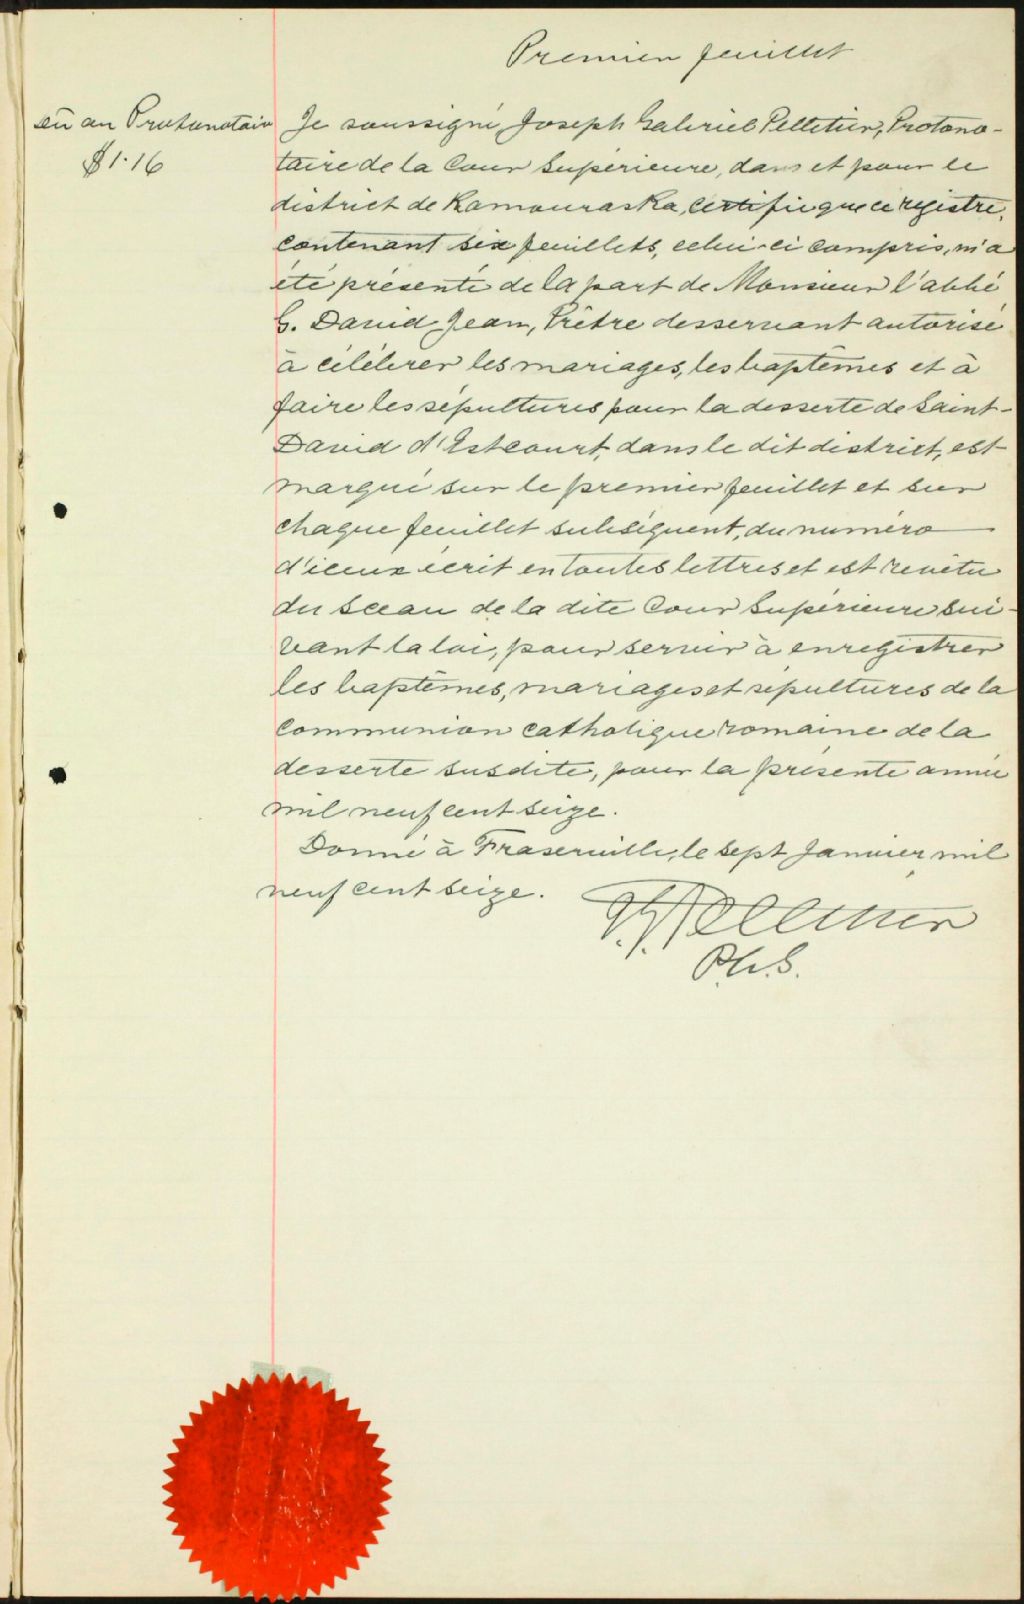 Premier feuillet
dû au Protonotaire
$1.16
Je soussigné, Joseph Gabriel Pelletier, Protono-
taire de la Cour Supérieure, dans et pour le
district de Kamouraska, certifie que ce registre,
contenant six feuillets, celui-ci compris, m'a
été présenté de la part de Monsieur l'abbé
G. David Jean, Prêtre desservant autorisé
à célébrer les mariages, les baptêmes et à
faire les sépultures pour la desserte de Saint-
David d'Estcourt, dans le dit district, est
marqué sur le premier feuillet et sur
chaque feuillet subséquent, du numéro
d'iceux écrit en toutes lettres et est revêtu
du sceau de la dite Cour Supérieure sui-
vant la loi, pour servir à enregistrer
les baptêmes, mariages et sépultures de la
Communion catholique romaine de la
desserte susdite, pour la présente année
mil neuf cent seize.
Donné à Fraserville, le sept Janvier mil
neuf cent seize.
J.G. Pelletier
P.C.S.